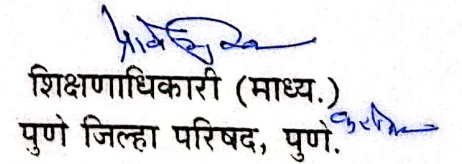 शिक्षणाधिकारी (माध्य.)
पुणे जिल्हा परिषद, पुणे.